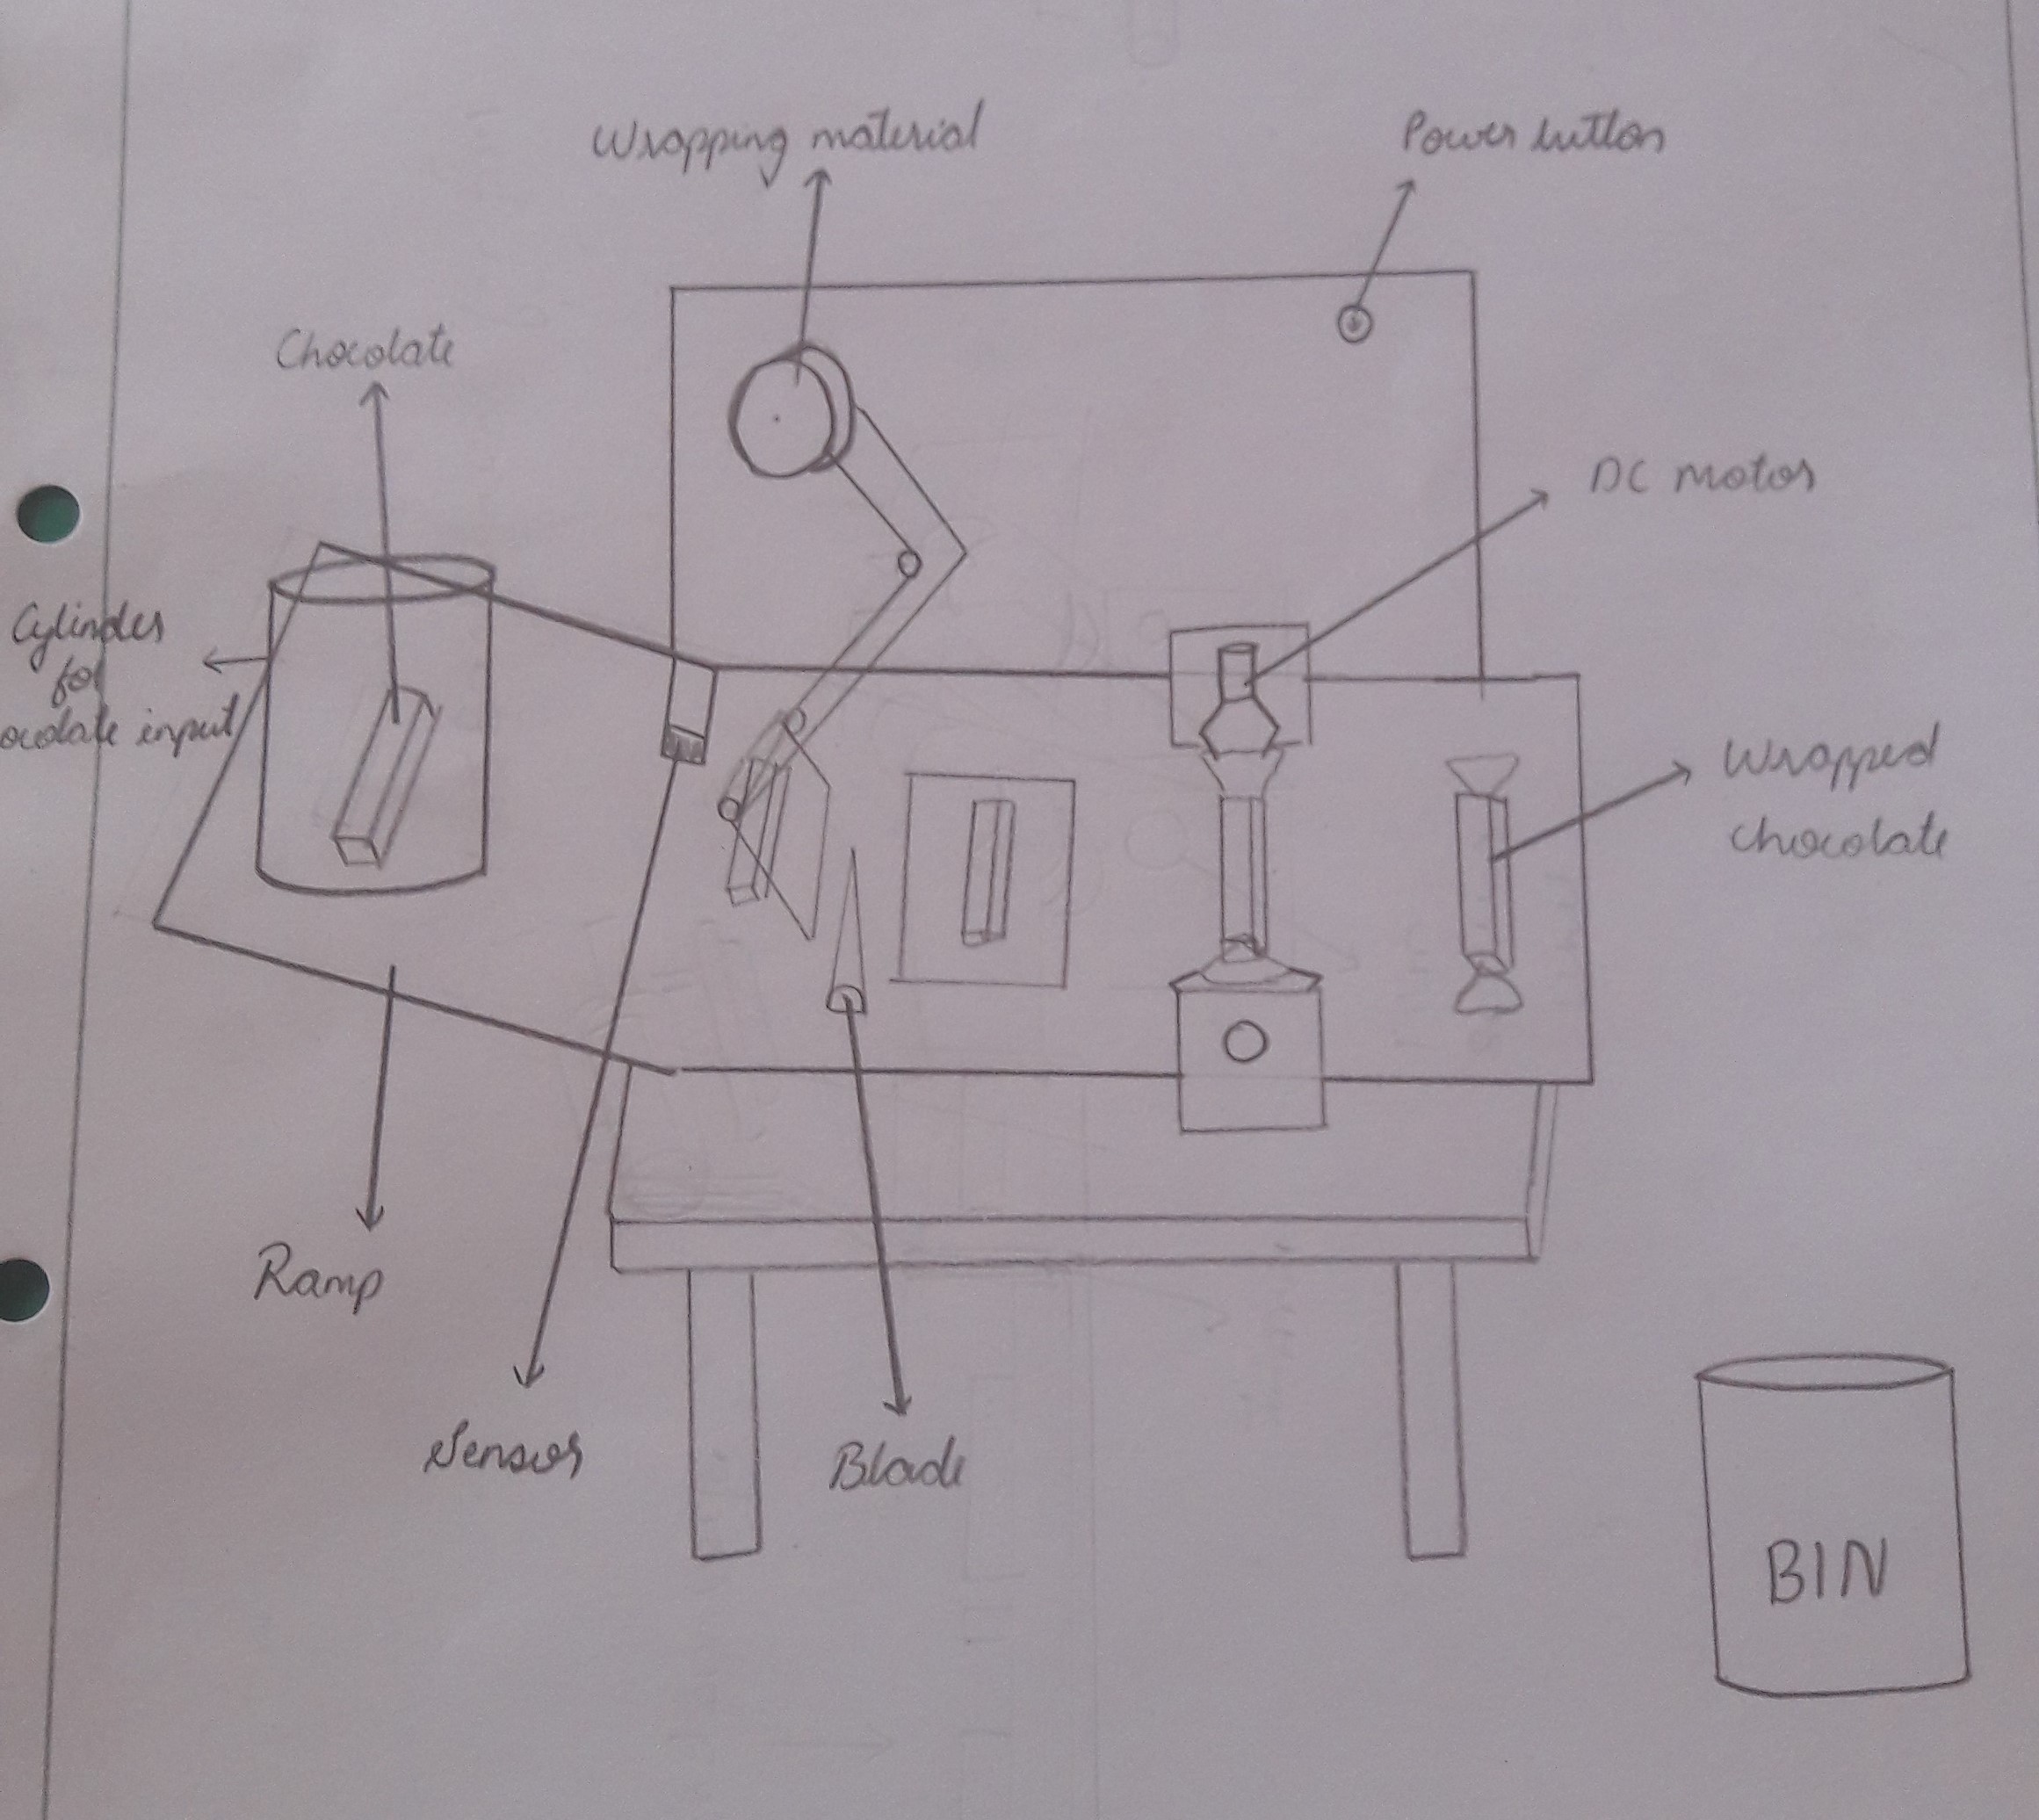 Wrapping material
Power button
Chocolate
DC motor
Cylinder
for
ocolate input
Wrapped
chocolate
Ramp
Sensor
Blade
BIN